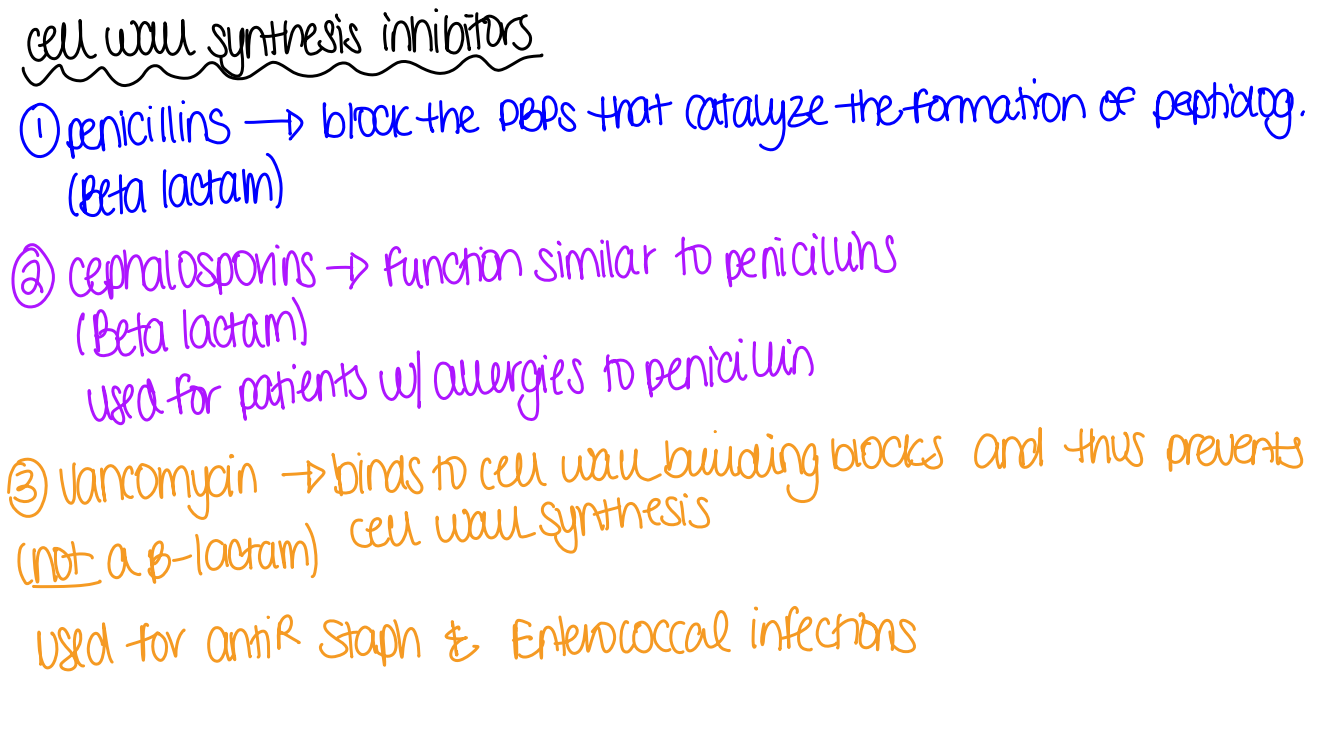 cell wall synthesis inhibitors
① penicillins → block the PBPs that catalyze the formation of peptidog.
(Beta lactam)
② cephalosporins → function similar to penicillins
(Beta lactam)
used for patients w/ allergies to penicillin
③ vancomycin → binds to cell wall building blocks and thus prevents
cell wall synthesis
(not a β-lactam)
used for antiR Staph & Enterococcal infections